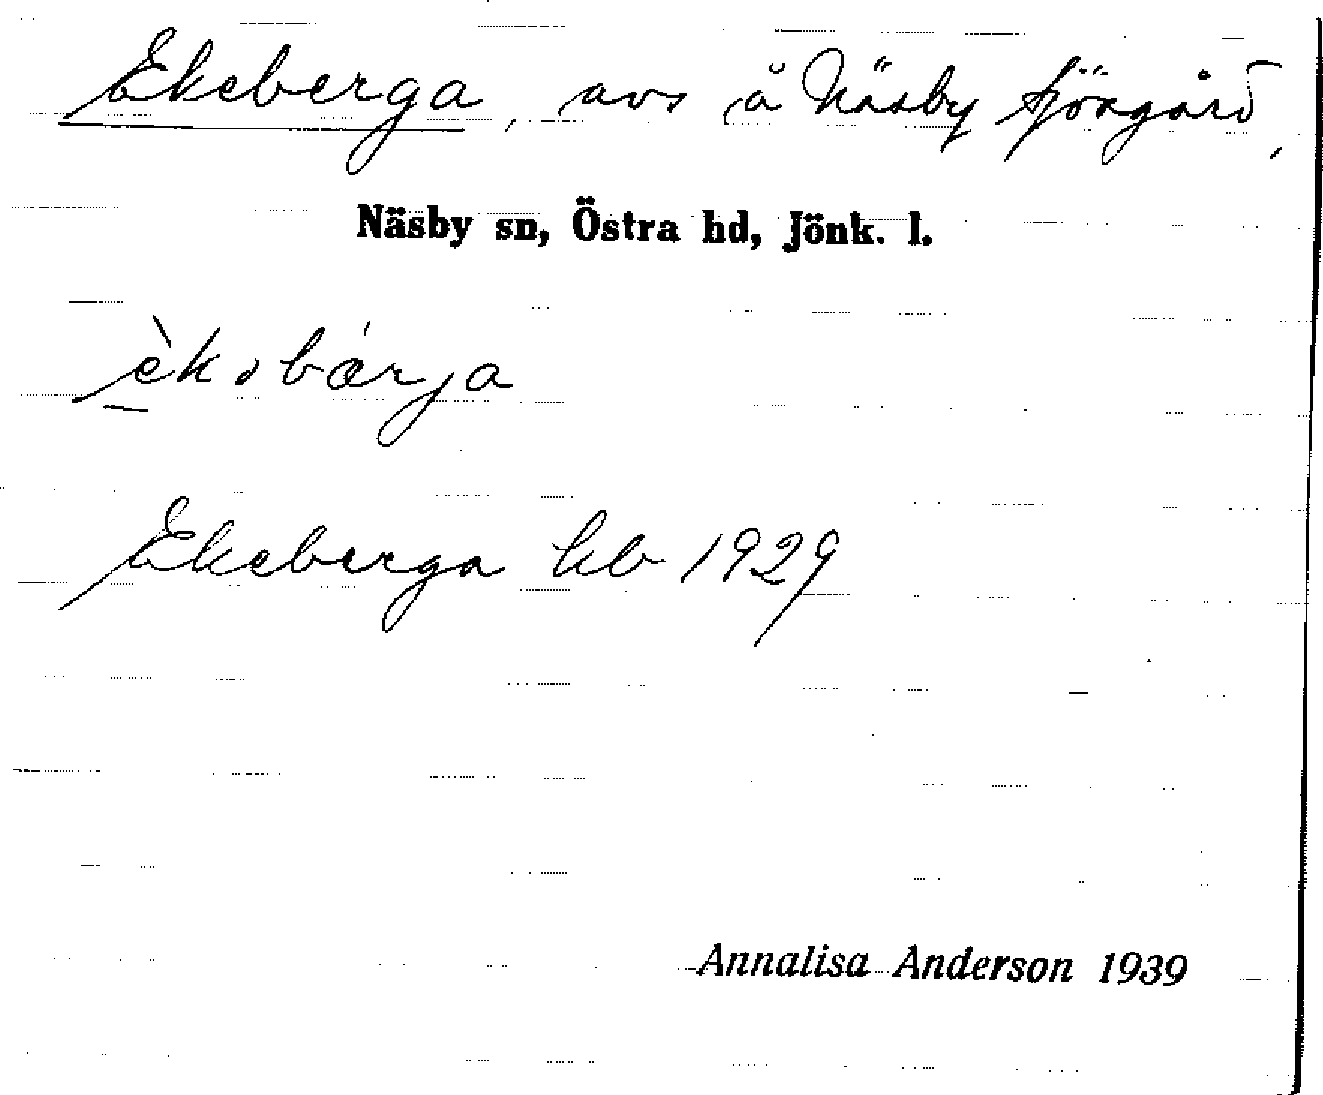 Ekeberga, avs å Näsby sjögård,
Näsby sn, Östra hd, Jönk. l.
èkəbǽrja
Ekeberga kb 1929
Annalisa Anderson 1939